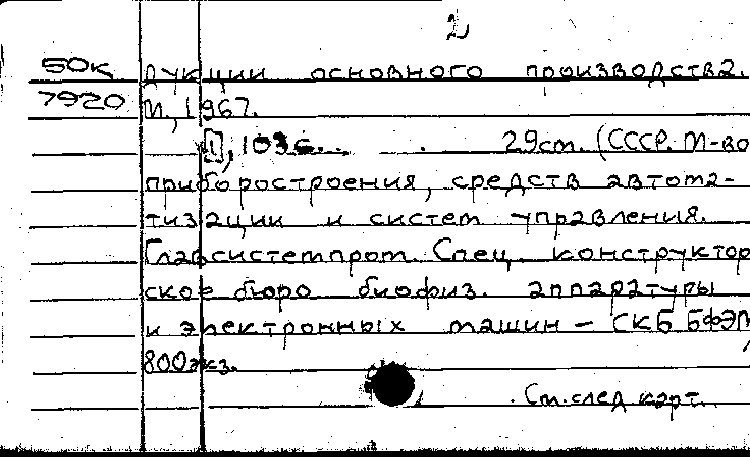 2
50к дукции основного производства.
7920 М., 1967.
[1], 103 с. 29 см. (СССР. М-во
приборостроения, средств автома-
тизации и систем управления.
Главсистемпром. Спец. конструктор
ское бюро биофиз. аппаратуры
и электронных машин — СКБ БФЭМ
800 экз.
См. след карт.